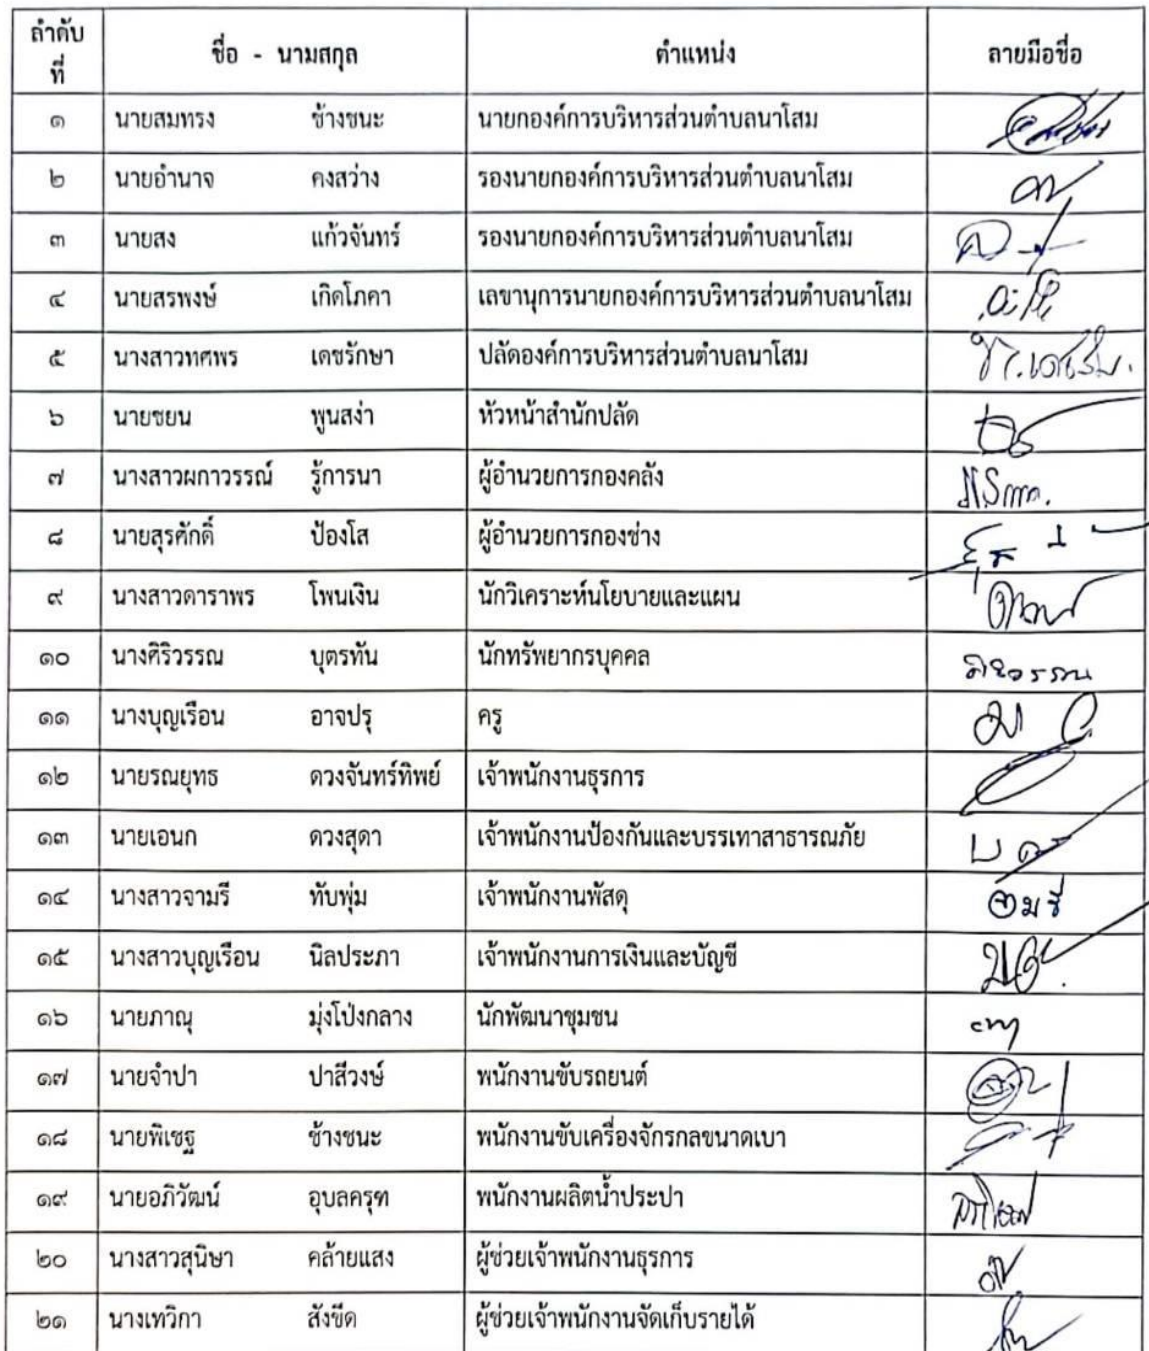 ลำดับที่ ชื่อ - นามสกุล ตำแหน่ง ลายมือชื่อ
๑ นายสมทรง ช้างชนะ นายกองค์การบริหารส่วนตำบลนาโสม
๒ นายอำนาจ คงสว่าง รองนายกองค์การบริหารส่วนตำบลนาโสม
๓ นายสง แก้วจันทร์ รองนายกองค์การบริหารส่วนตำบลนาโสม
๔ นายสรพงษ์ เกิดโภคา เลขานุการนายกองค์การบริหารส่วนตำบลนาโสม
๕ นางสาวทศพร เดชรักษา ปลัดองค์การบริหารส่วนตำบลนาโสม
๖ นายชยน พูนสง่า หัวหน้าสำนักปลัด
๗ นางสาวผกาวรรณ์ รู้การนา ผู้อำนวยการกองคลัง
๘ นายสุรศักดิ์ ป้องโส ผู้อำนวยการกองช่าง
๙ นางสาวดาราพร โพนเงิน นักวิเคราะห์นโยบายและแผน
๑๐ นางศิริวรรณ บุตรทัน นักทรัพยากรบุคคล
๑๑ นางบุญเรือน อาจปรุ ครู
๑๒ นายรณยุทธ ดวงจันทร์ทิพย์ เจ้าพนักงานธุรการ
๑๓ นายเอนก ดวงสุดา เจ้าพนักงานป้องกันและบรรเทาสาธารณภัย
๑๔ นางสาวจามรี ทับพุ่ม เจ้าพนักงานพัสดุ
๑๕ นางสาวบุญเรือน นิลประภา เจ้าพนักงานการเงินและบัญชี
๑๖ นายภาณุ มุ่งโป่งกลาง นักพัฒนาชุมชน
๑๗ นายจำปา ปาสีวงษ์ พนักงานขับรถยนต์
๑๘ นายพิเชฐ ช้างชนะ พนักงานขับเครื่องจักรกลขนาดเบา
๑๙ นายอภิวัฒน์ อุบลครุฑ พนักงานผลิตน้ำประปา
๒๐ นางสาวสุนิษา คล้ายแสง ผู้ช่วยเจ้าพนักงานธุรการ
๒๑ นางเทวิกา สังขีด ผู้ช่วยเจ้าพนักงานจัดเก็บรายได้